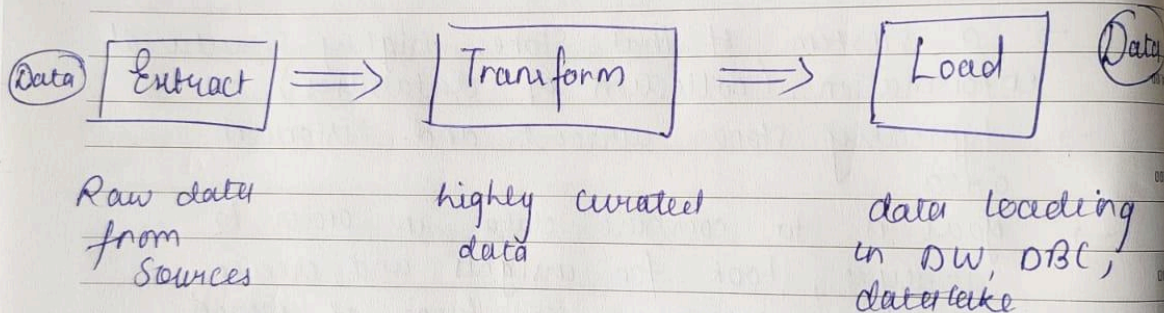 Data Extract ⟹ Transform ⟹ Load Data
Raw data
from
Sources
highly curated
data
data loading
in DW, DBC,
datalake